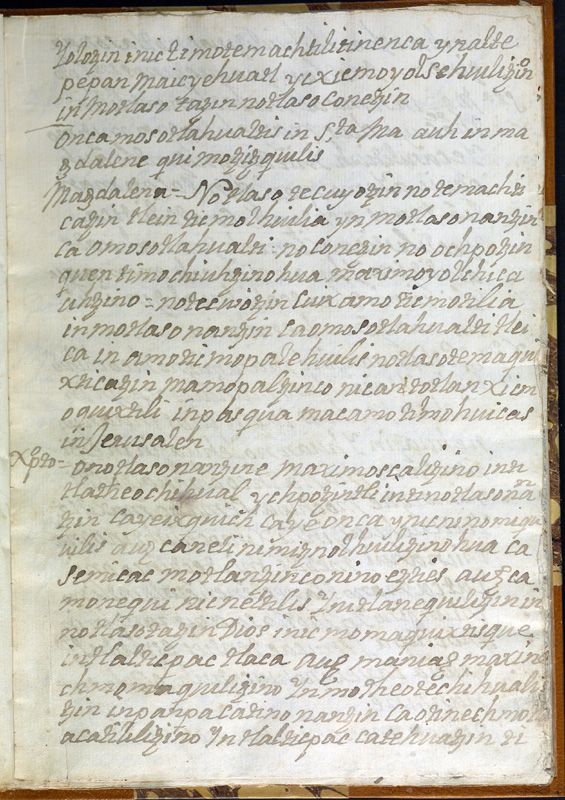 yolozin inic timotemachtilitinenca ynalte
pepan Maic yehuatl yc xicmoyolsehuilizino
in Motlaso tazin notlaso conezin
Oncamosotlahualtis in Sta Ma auh in ma
gdalene quimotzitzquilis
Magdalena = Notlasotecuyozin notemachti
cazin tlein ticmolhuilia yn motlasonanzin
ca omosotlahualti no conezin no ochpotzin
quen timochiuhzinohua maximoyolchica
uhzino = notecuiozin cuix amo ticmotilia
in motlasonanzin ca omosotlahualti tlei
ca in amo ticmopalehuilis notlasotemaqui
xticazin ma mopalzinco nican totlan xicm
oquixtili in pasqua macamo timohuicas
in Jerusalen
Xpto = o notlasonanzine maximoscalizino inti
tlatheochihual ychpozintli intinotlasona
zin ca ye ixquich ca ye onca ynicninomiqui
uilis auh ca nelli nimiznothuilizinohua ca
semicac motlanzinco ninoezties auh ca
monequi nicneltilis Yn itlanequilizin in
notlasotazin Dios inic momaquixtisque
in tlalticpac tlaca auh maniaz maxine
chmomaquilizino Yn motheotechihualis
zin inpanpa catinonanzin ca otinechmotla
acatililizino Yn tlalticpac ca tehuatzin ti